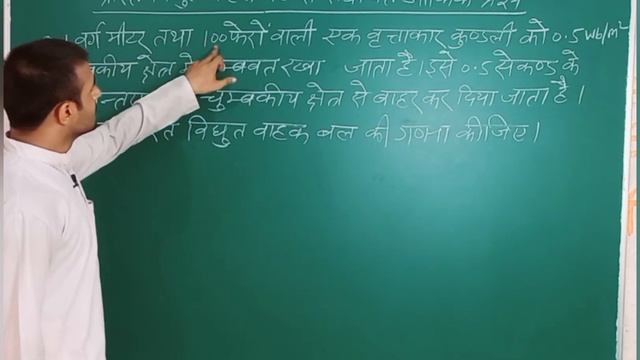 1 वर्ग मीटर तथा 100 फेरों वाली एक वृत्ताकार कुण्डली को 0.5 wb/m²
क्षेत्र में लम्बवत रखा जाता है। इसे 0.5 सेकण्ड के
चुम्बकीय क्षेत्र से बाहर कर दिया जाता है।
विद्युत वाहक बल की गणना कीजिए।